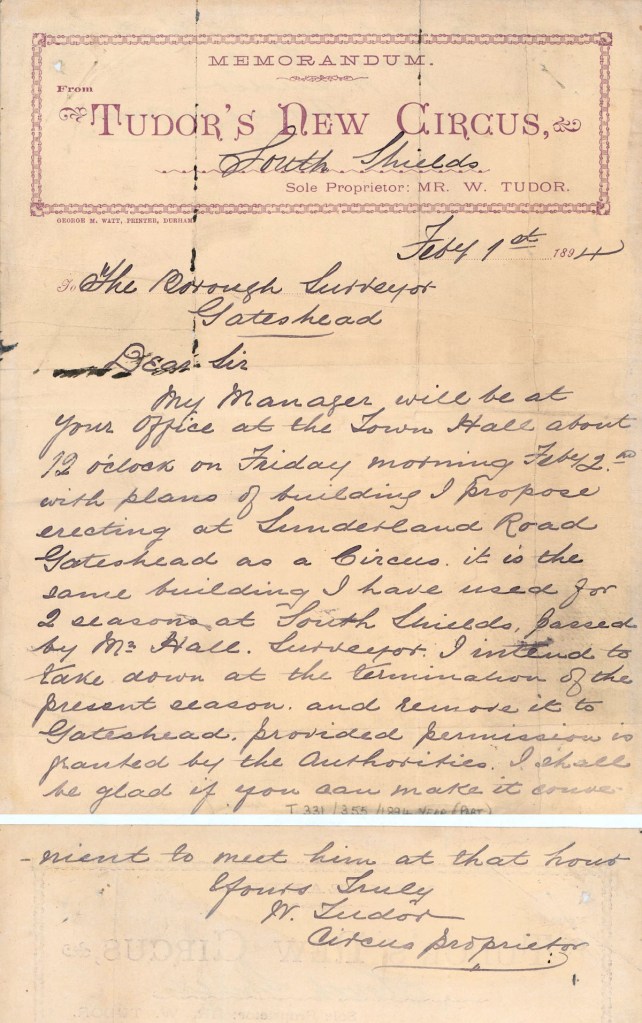 MEMORANDUM.
From
TUDOR'S NEW CIRCUS,
South Shields
Sole Proprietor: MR. W. TUDOR.
GEORGE M. WATT, PRINTER, DURHAM
Feby 1st 1894
To The Borough Surveyor
Gateshead
Dear Sir
My Manager will be at
your Office at the Town Hall about
12 o'clock on Friday morning Feby 2nd
with plans of building I propose
erecting at Sunderland Road
Gateshead as a Circus. it is the
same building I have used for
2 seasons at South Shields, passed
by Mr Hall. Surveyor. I intend to
take down at the termination of the
present season. and remove it to
Gateshead. provided permission is
granted by the Authorities. I shall
be glad if you can make it conve-
T 331/355/1894 YEAR (PART)
-nient to meet him at that hour
Yours Truly
W. Tudor
Circus proprietor